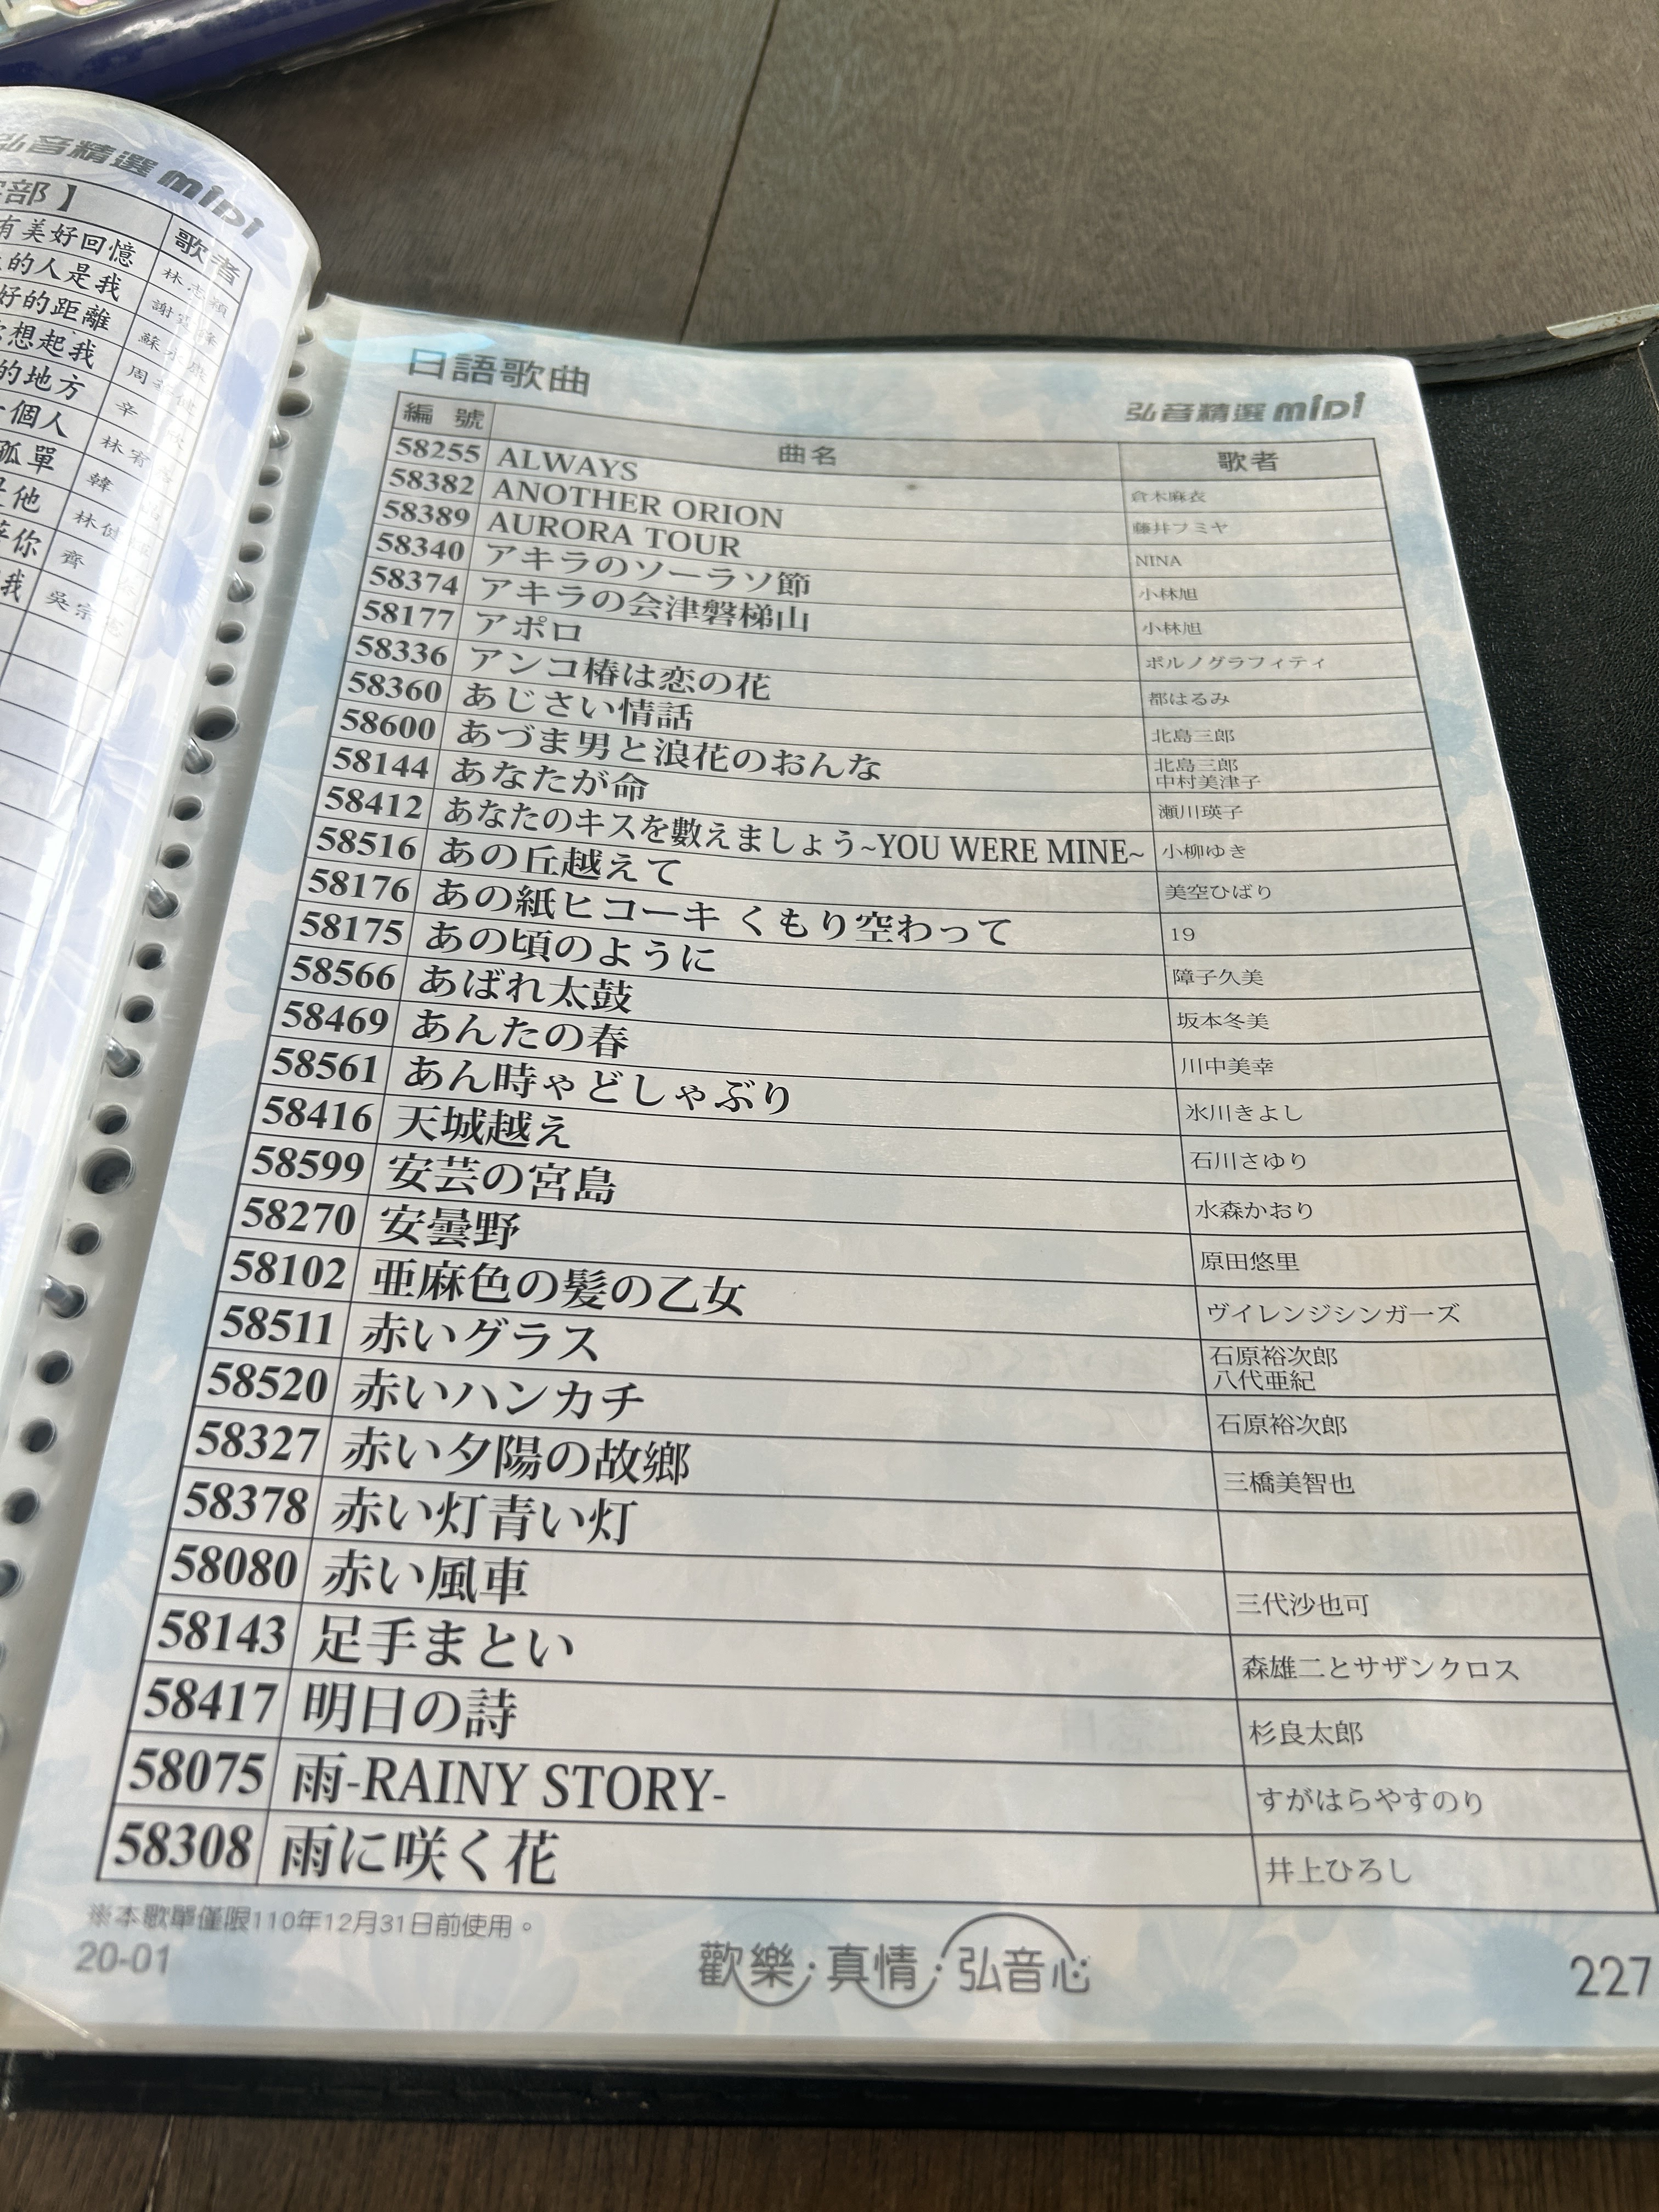 弘音精選 MIDI
部】
歌者
有美好回憶
林志穎
的人是我
好的距離
想起我
的地方
個人
孤單
是他
等你
日語歌曲
弘音精選 MIDI
編號 曲名 歌者
58255 ALWAYS 倉木麻衣
58382 ANOTHER ORION 藤井フミヤ
58389 AURORA TOUR NINA
58340 アキラのソーラソ節 小林旭
58374 アキラの会津磐梯山 小林旭
58177 アポロ ポルノグラフィティ
58336 アンコ椿は恋の花 都はるみ
58360 あじさい情話 北島三郎
58600 あづま男と浪花のおんな 北島三郎 中村美津子
58144 あなたが命 瀬川瑛子
58412 あなたのキスを數えましょう~YOU WERE MINE~ 小柳ゆき
58516 あの丘越えて 美空ひばり
58176 あの紙ヒコーキ くもり空わって 19
58175 あの頃のように 障子久美
58566 あばれ太鼓 坂本冬美
58469 あんたの春 川中美幸
58561 あん時ゃどしゃぶり 氷川きよし
58416 天城越え 石川さゆり
58599 安芸の宮島 水森かおり
58270 安曇野 原田悠里
58102 亜麻色の髪の乙女 ヴイレンジシンガーズ
58511 赤いグラス 石原裕次郎 八代亜紀
58520 赤いハンカチ 石原裕次郎
58327 赤い夕陽の故鄉 三橋美智也
58378 赤い灯青い灯
58080 赤い風車 三代沙也可
58143 足手まとい 森雄二とサザンクロス
58417 明日の詩 杉良太郎
58075 雨-RAINY STORY- すがはらやすのり
58308 雨に咲く花 井上ひろし
※本歌單僅限110年12月31日前使用。
20-01
歡樂·真情·弘音心
227